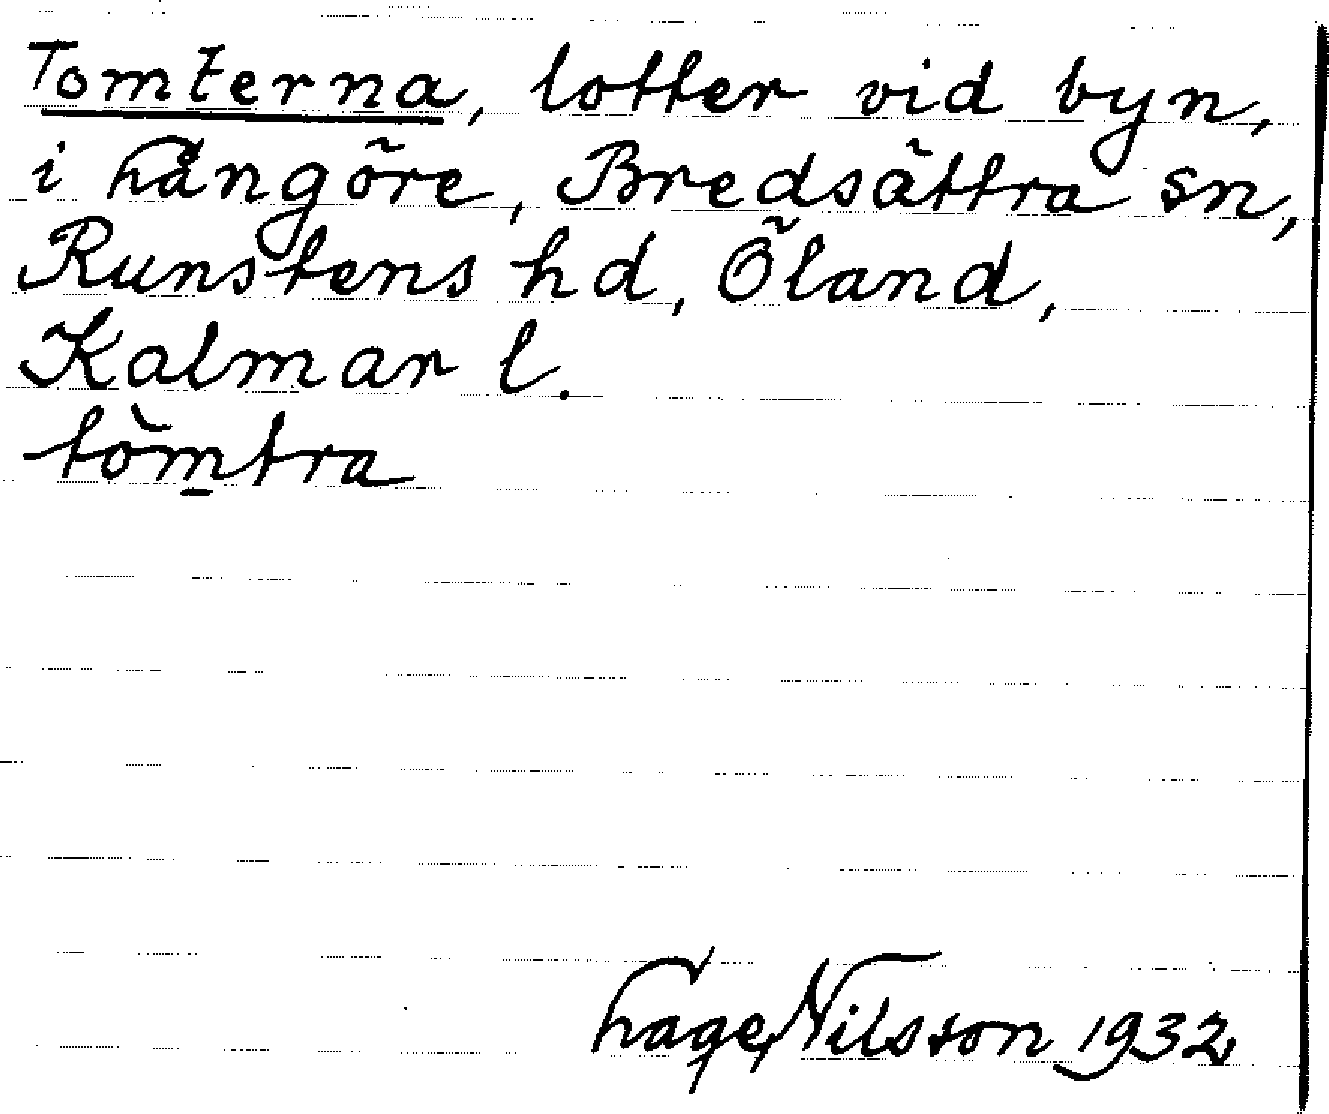 Tomterna, lotter vid byn,
i Långöre, Bredsättra sn,
Runstens hd, Öland,
Kalmar l.
tòm̲tra
Lage Nilsson 1932